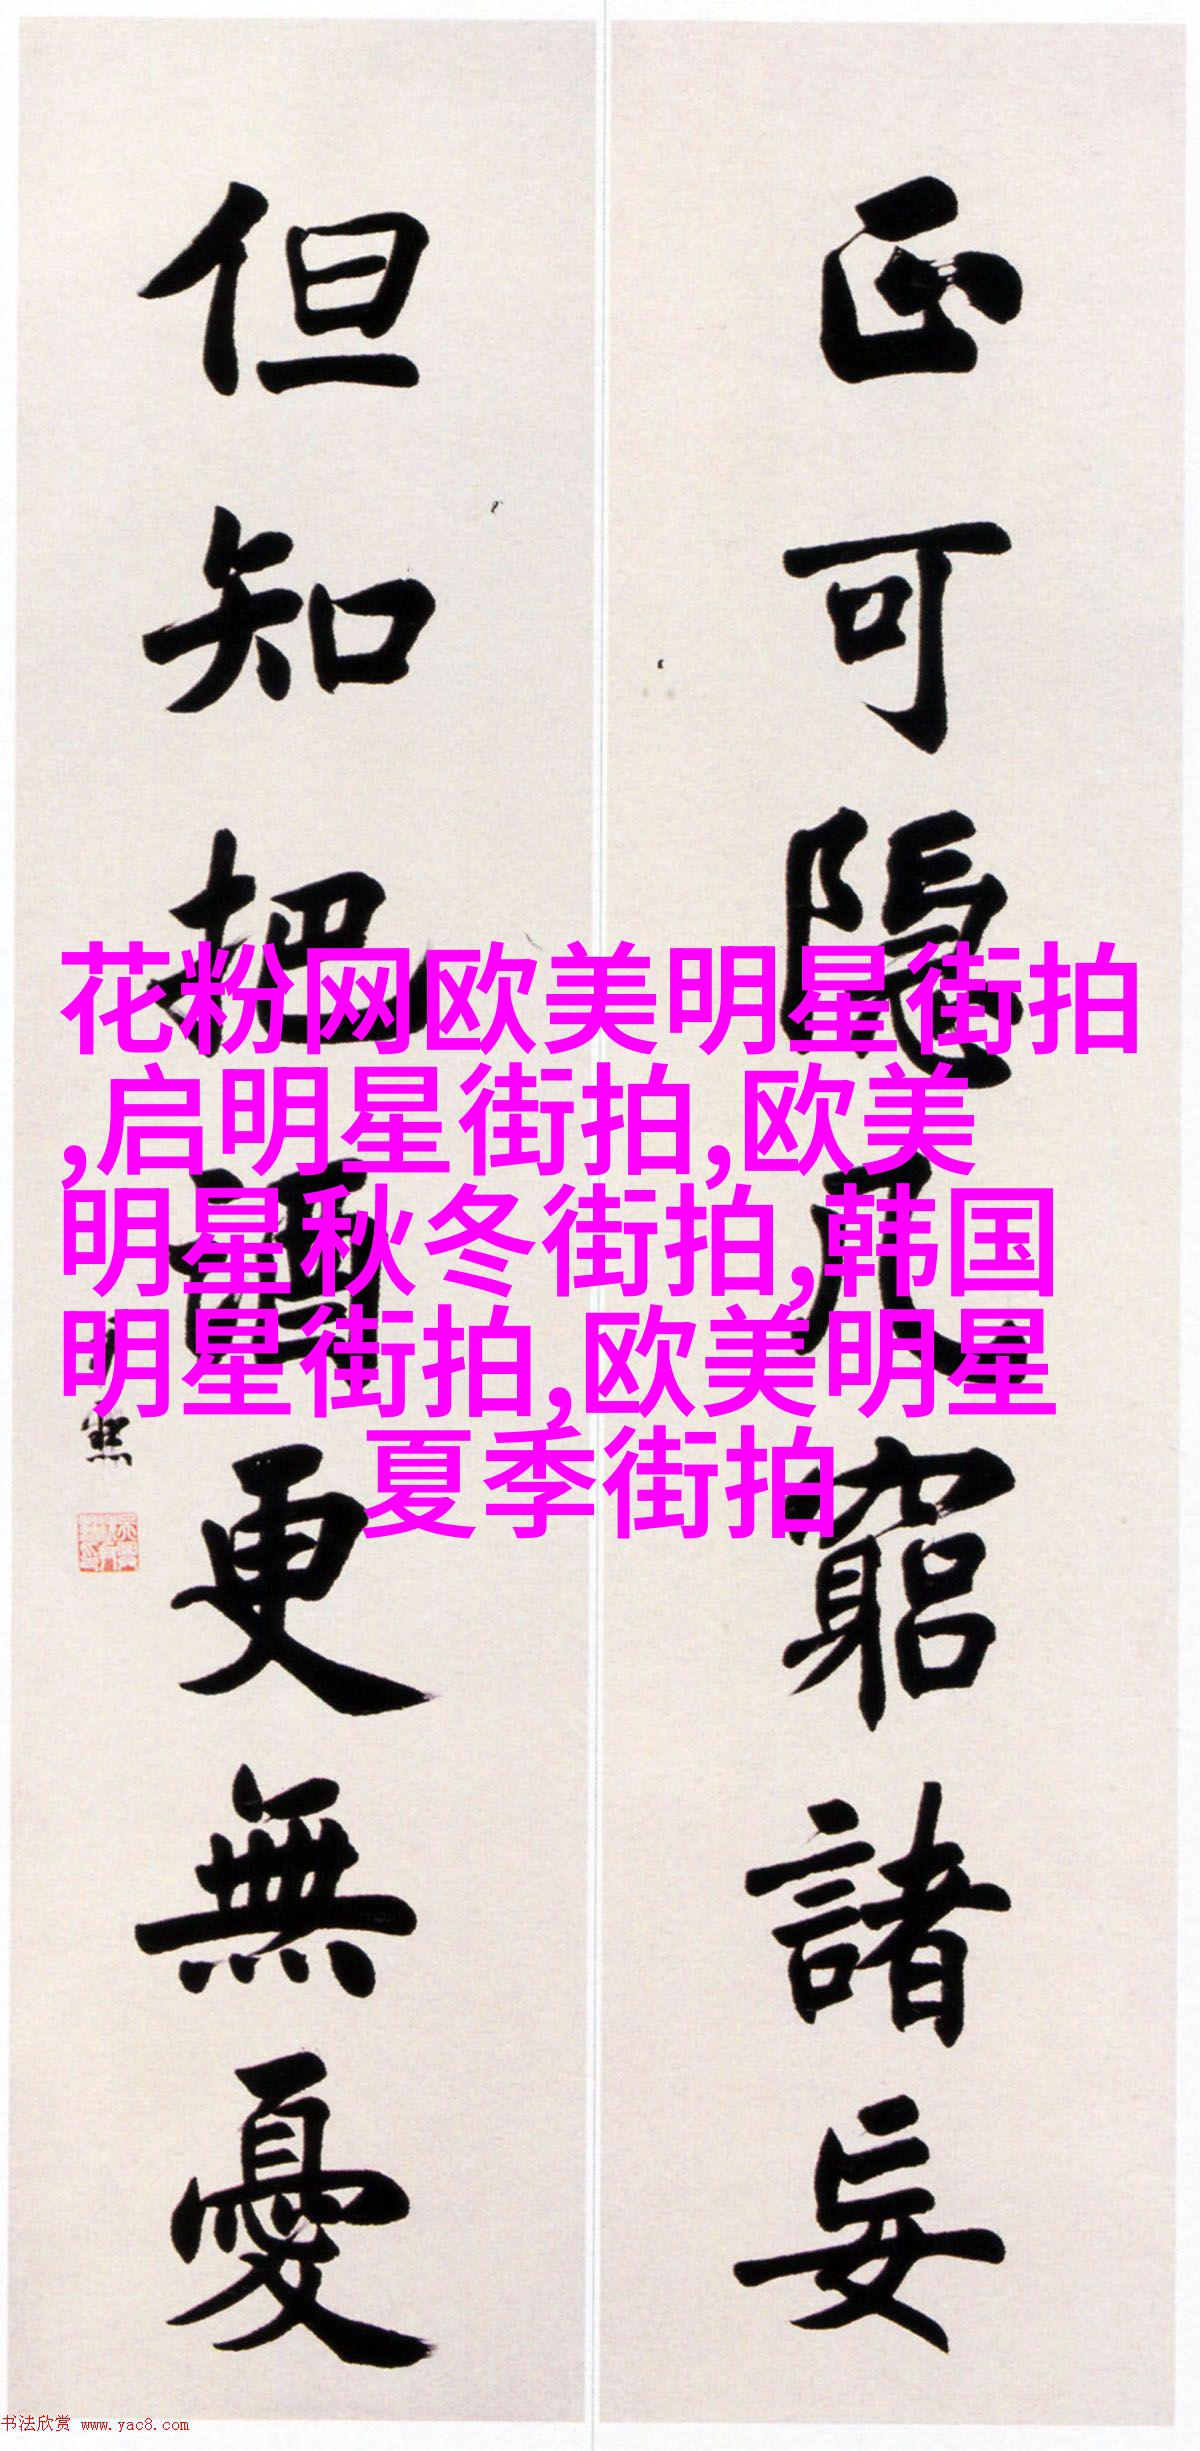 正可隐几窮諸妄
但知把酒更無憂
花粉网欧美明星街拍
,启明星街拍,欧美
明星秋冬街拍,韩国
明星街拍,欧美明星
夏季街拍
书法欣赏 www.yac8.com